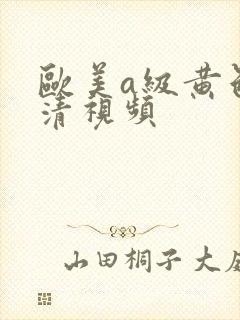 歐美a級黃
清視頻
山田桐子大